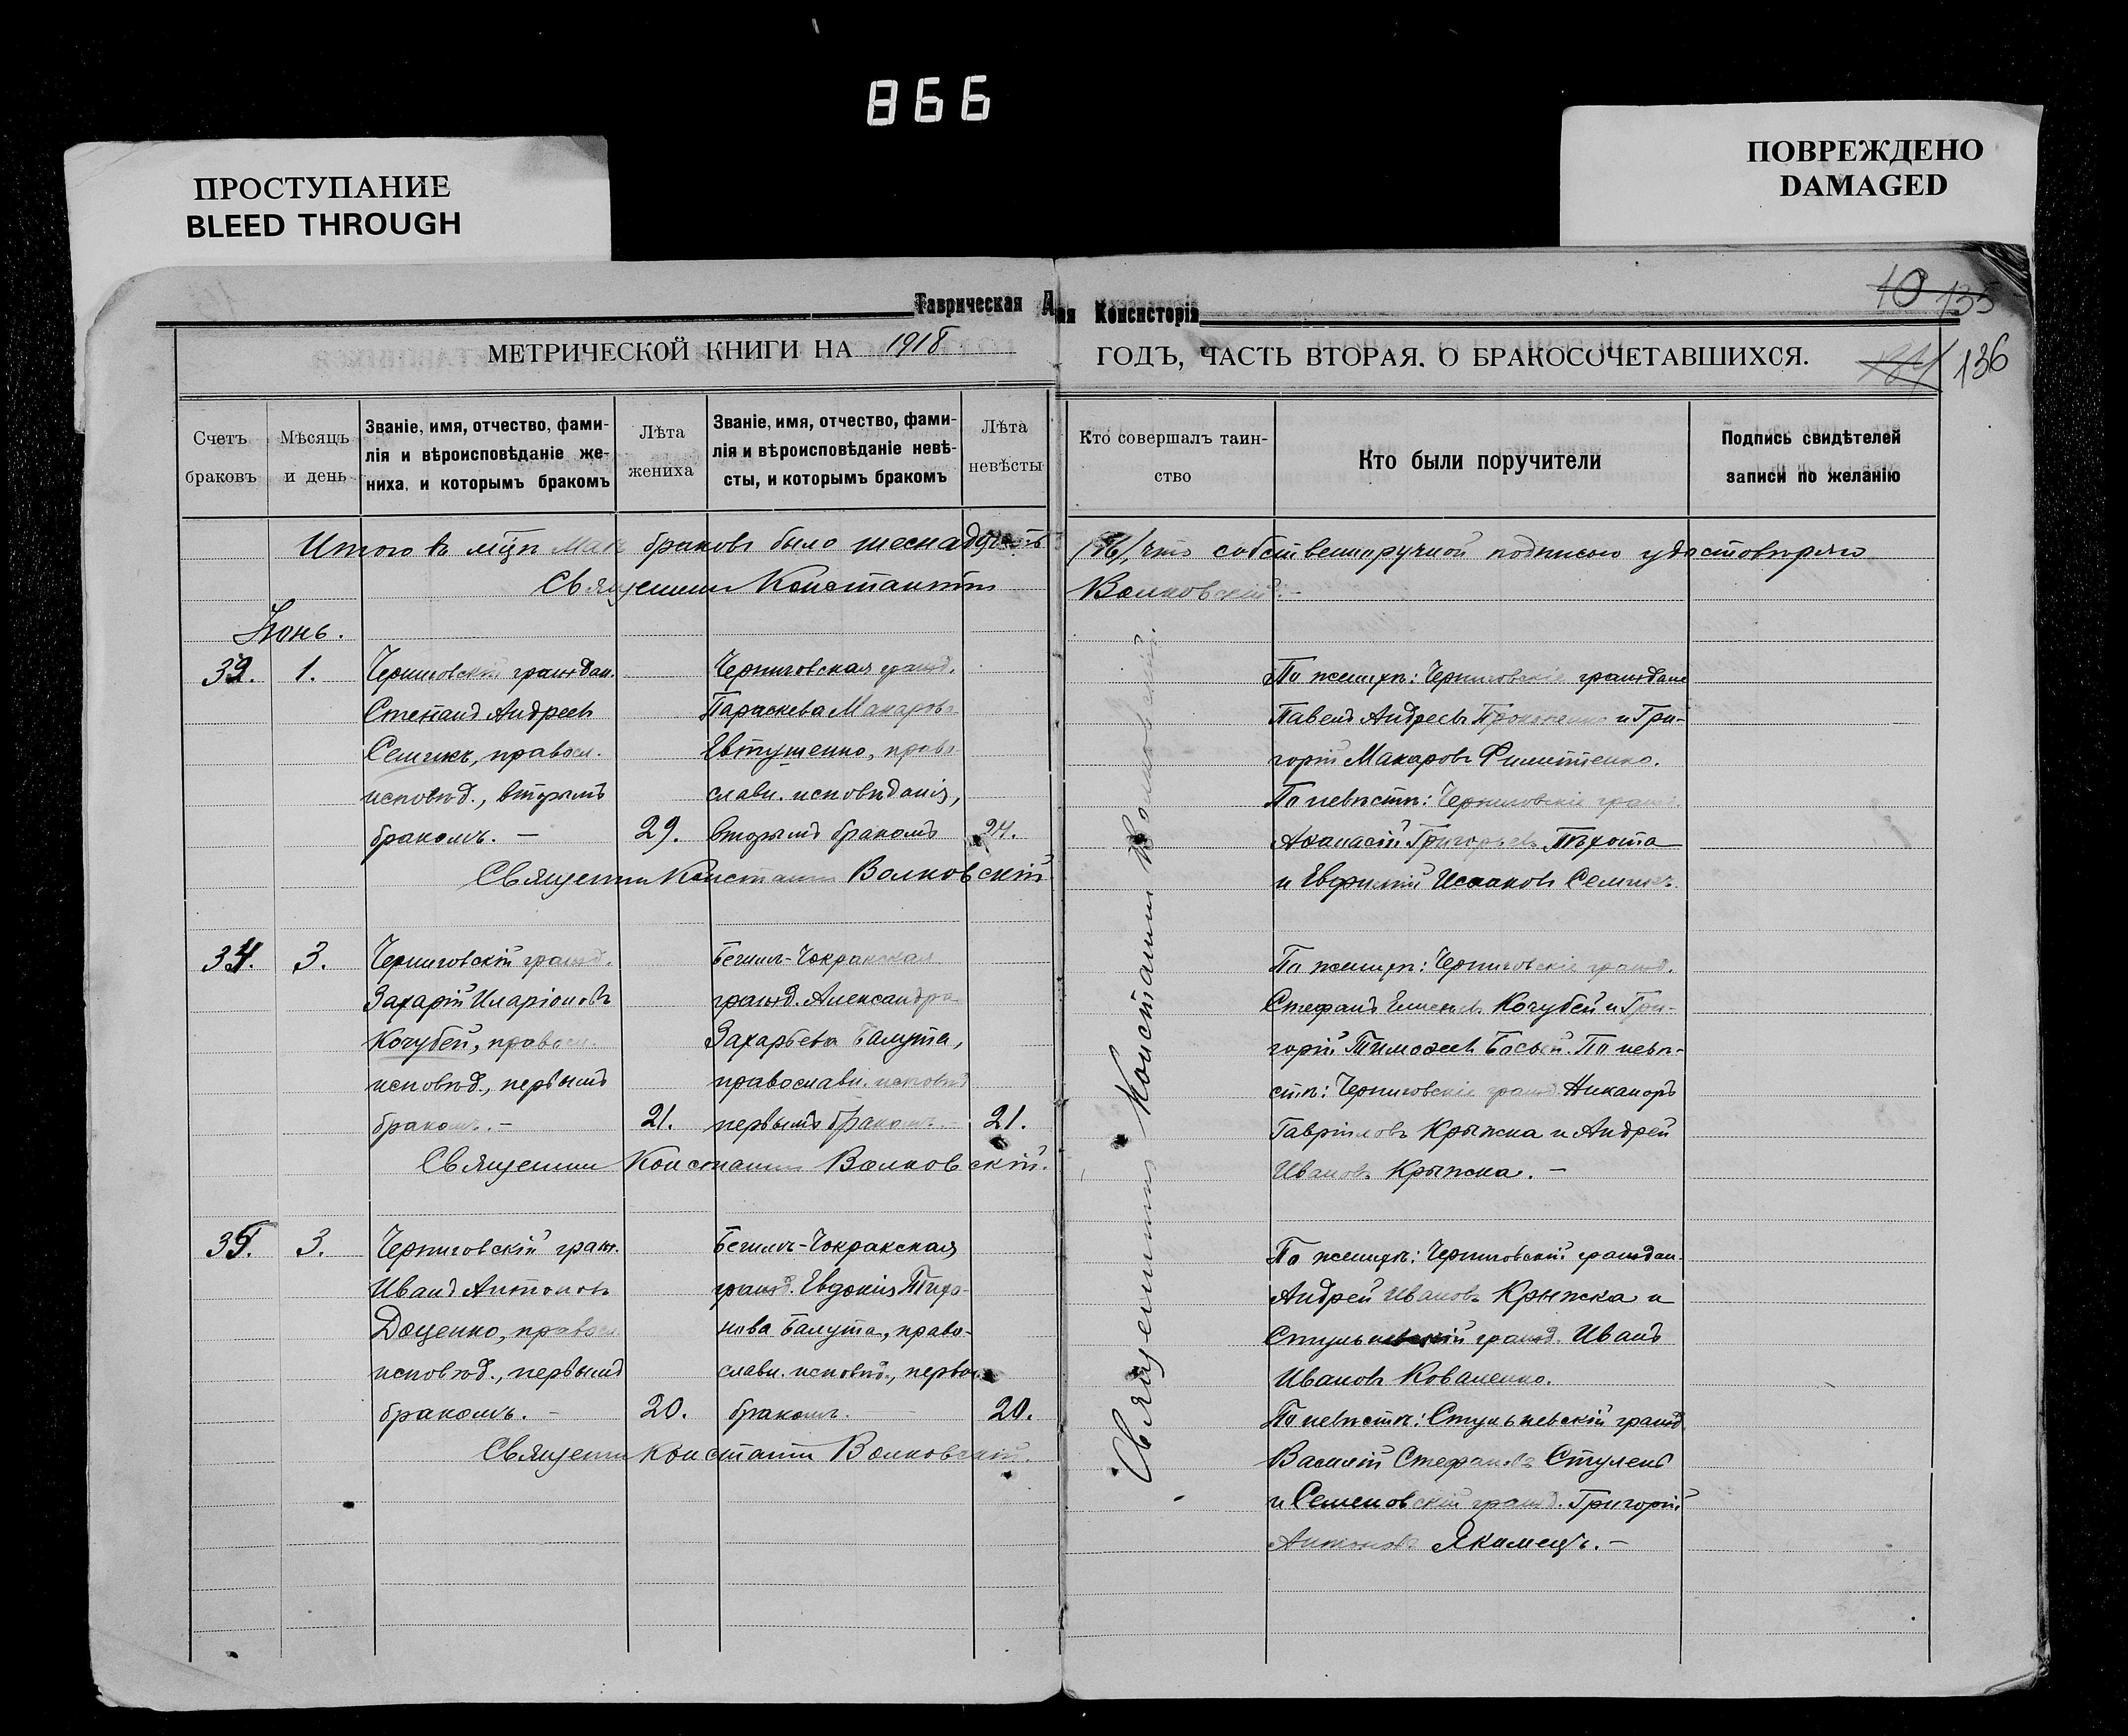 866
ПРОСТУПАНИЕ
BLEED THROUGH
ПОВРЕЖДЕНО
DAMAGED
10 135
136
Таврическая
Консисторія
МЕТРИЧЕСКОЙ КНИГИ НА 1918
ГОДЪ, ЧАСТЬ ВТОРАЯ, О БРАКОСОЧЕТАВШИХСЯ.
Счетъ
браковъ
Мѣсяцъ
и день
Званіе, имя, отчество, фами-
лія и вѣроисповѣданіе же-
ниха, и которымъ бракомъ
Лѣта
жениха
Званіе, имя, отчество, фами-
лія и вѣроисповѣданіе невѣ-
сты, и которымъ бракомъ
Лѣта
невѣсты
Кто совершалъ таин-
ство
Кто были поручители
Подпись свидѣтелей
записи по желанію
Итого въ мцѣ Маѣ браковъ было шеснадцать (16), что собственноручной подписью удостовѣряю
Священникъ Константинъ Волковскій.-
Іюнь.
33.
1.
Черниговскій граждан.
Стефанъ Андреевъ
Семикъ, правосл.
исповѣд., вторымъ
бракомъ. —
29.
Черниговская гражд.
Параскева Макарова
Евтушенко, право-
славн. исповѣданія,
вторымъ бракомъ
24.
Священникъ Константинъ Волковскій
По женихѣ: Черниговскіе граждане
Павелъ Андреевъ Прокопенко и Гри-
горій Макаровъ Филиппенко.
По невѣстѣ: Черниговскіе гражд.
Аѳанасій Григорьевъ Пѣхота
и Евфимій Исааковъ Семикъ.
34.
3.
Черниговскій гражд.
Захарій Иларіоновъ
Кочубей, правосл.
исповѣд., первымъ
бракомъ. —
21.
Бегимъ-Чокракская
гражд. Александра
Захарьева Балута,
православн. исповѣд.
первымъ бракомъ. —
21.
Священникъ Константинъ Волковскій.
По женихѣ: Черниговскіе гражд.
Стефанъ Кочубей и Гри-
горій Тимоѳеевъ Басый. По невѣ-
стѣ: Черниговскіе гражд. Никаноръ
Гавріиловъ Крыжка и Андрей
Ивановъ Крыжка. —
35.
3.
Черниговскій граж.
Иванъ Антоновъ
Доценко, правосл.
исповѣд., первымъ
бракомъ. —
20.
Бегимъ-Чокракская
гражд. Евдокія Тихо-
нова Балута, право-
славн. исповѣд., первымъ
бракомъ. —
20.
Священникъ Константинъ Волковскій.
По женихѣ: Черниговскій граждан.
Андрей Ивановъ Крыжка и
гражд. Иванъ
Ивановъ Коваленко.
По невѣстѣ: Стульневскій гражд.
Василій Стефановъ Стулень
и Семеновскій гражд. Григорій
Антоновъ Якимецъ. —
Священникъ Константинъ Волковскій.